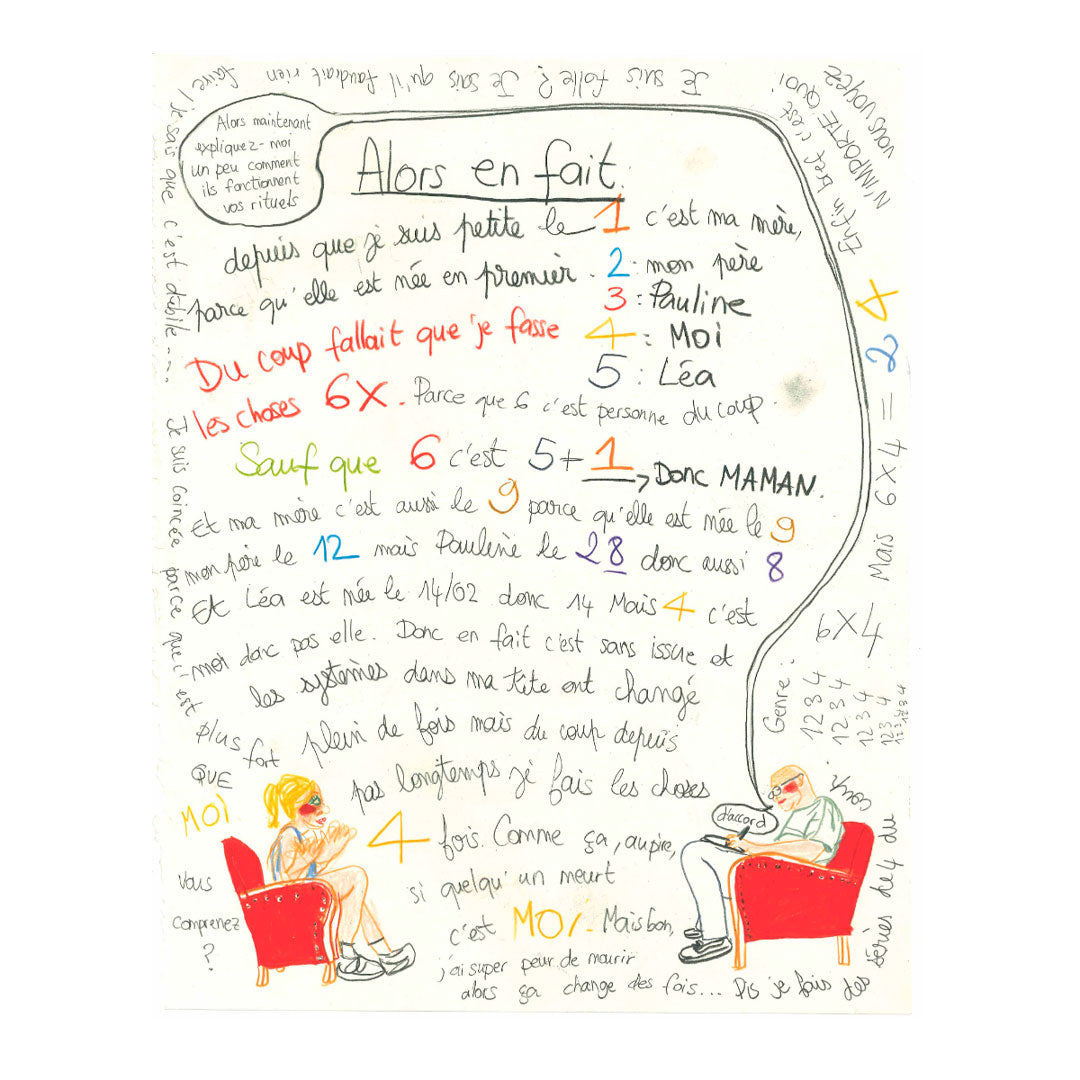 Alors maintenant
expliquez-moi
un peu comment
ils fonctionnent
vos rituels
Alors en fait.
depuis que je suis petite le 1 c'est ma mère,
parce qu'elle est née en premier. 2: mon père
3: Pauline
4: Moi
5: Léa
Du coup fallait que je fasse
les choses 6x. Parce que 6 c'est personne du coup.
Sauf que 6 c'est 5+1
→ Donc MAMAN.
Et ma mère c'est aussi le 9 parce qu'elle est née le 9
mon père le 12 mais Pauline le 28 donc aussi 8
Et Léa est née le 14/02 donc 14 Mais 4 c'est
moi donc pas elle. Donc en fait c'est sans issue et
les systèmes dans ma tête ont changé
plein de fois mais du coup depuis
pas longtemps je fais les choses
4 fois. Comme ça, au pire,
si quelqu'un meurt
c'est MOI. Mais bon,
j'ai super peur de mourir
alors ça change des fois... Pis je fais des
séries de 4 du
coup.
Genre:
1234
1234
1234
1234
1234
1234
6X4
Mais 6X4 = 24
Enfin bref c'est
N'IMPORTE QUOI
VOUS VOYEZ
Je suis folle? Je sais qu'il faudrait rien
faire! Je sais que c'est débile....
Je suis coincée parce que c'est
plus fort
QUE
MOI
Vous
comprenez
?
d'accord